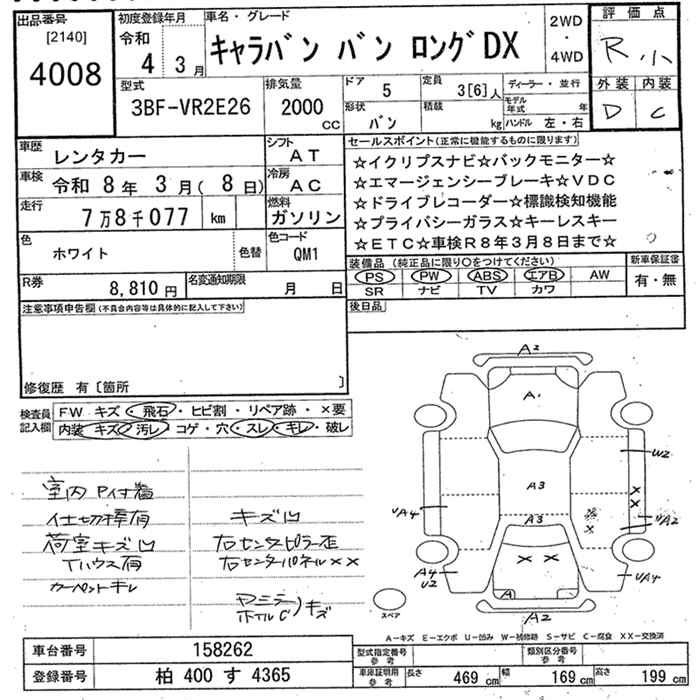 出品番号
[2140]
4008
初度登録年月
令和
4 3月
車名・グレード
キャラバン バン ロングDX
2WD
・
4WD
評価点
R 小
外装 内装
D C
型式
3BF-VR2E26
排気量
2000 cc
ドア 5
定員 3[6]人
ディーラー・並行
形状 バン
積載 kg
モデル年式 年
ハンドル 左・右
車歴 レンタカー
シフト AT
車検 令和 8年 3月( 8日)
冷房 AC
走行 7万8千077 km
燃料 ガソリン
色 ホワイト 色替
色コード QM1
R券 8,810円
名変通知期限 月 日
セールスポイント(正常に機能するものに限ります)
☆イクリプスナビ☆バックモニター☆
☆エマージェンシーブレーキ☆VDC
☆ドライブレコーダー☆標識検知機能
☆プライバシーガラス☆キーレスキー
☆ETC☆車検R8年3月8日まで☆
装備品(純正品に限り〇をつけてください)
新車保証書
PS PW ABS エアB AW
有・無
SR ナビ TV カワ
後日品
注意事項申告欄(不具合内容等は具体的に記入して下さい)
修復歴 有〔箇所 〕
検査員記入欄
FW キズ・飛石・ヒビ割・リペア跡・×要
内装 キズ 汚レ コゲ・穴・スレ・キレ・破レ
仕切棒有
荷室キズ凹
Tハウス有
カーペットキレ
キズ凹
右センタピラー歪
右センタパネル××
キズ
A2
A1
A3
A3
W2
A4
U2
A
A2
スペア
A-キズ E-エクボ U-凹み W-補修跡 S-サビ C-腐食 XX-交換済
車台番号 158262
登録番号 柏 400 す 4365
型式指定番号 参考
類別区分番号 参考
車庫証明用 参考
長さ 469 cm
幅 169 cm
高さ 199 cm